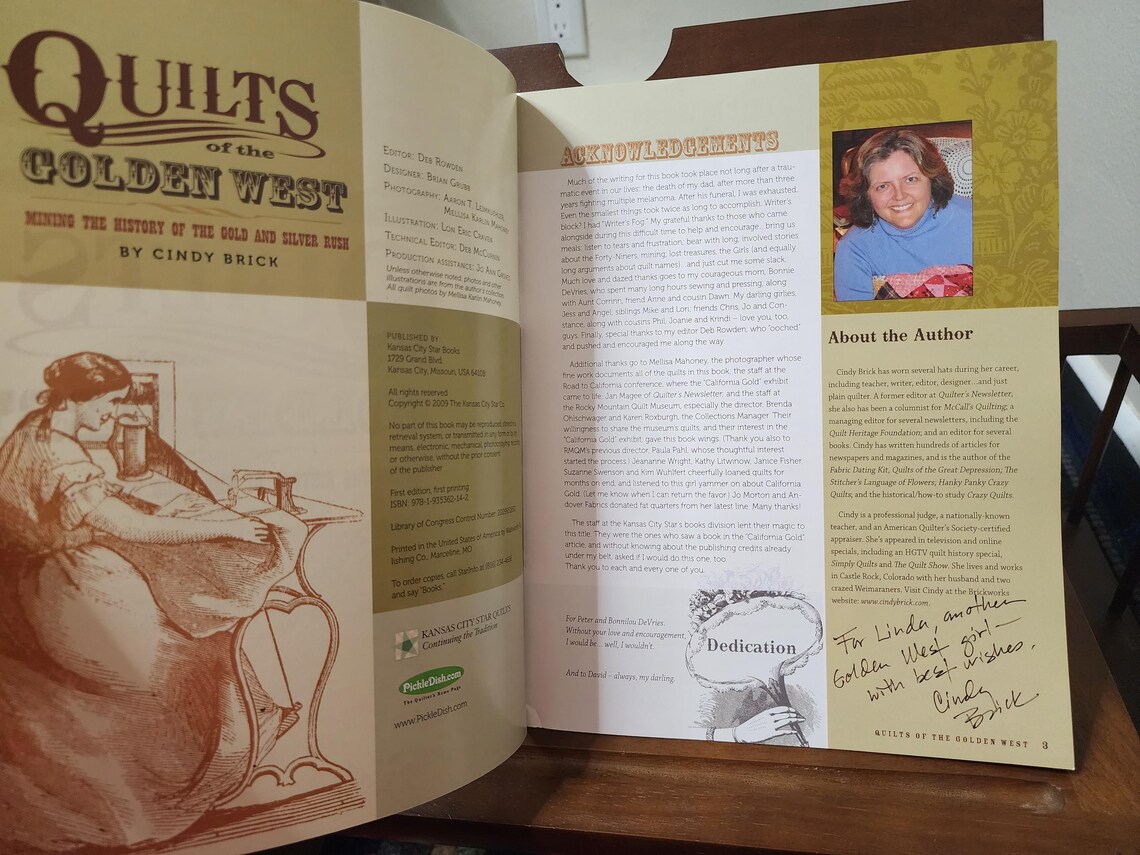 QUILTS
of the
GOLDEN WEST
MINING THE HISTORY OF THE GOLD AND SILVER RUSH
BY CINDY BRICK
EDITOR: DEB ROWDEN
DESIGNER: BRIAN GRUBB
PHOTOGRAPHY: AARON T.
MELLISA KARLIN MAHONEY
ILLUSTRATION: LON ERIC CRAVEN
TECHNICAL EDITOR: DEB
PRODUCTION ASSISTANCE: JO ANN
Unless otherwise noted, photos and other
illustrations are from the author's collection.
All quilt photos by Mellisa Karlin Mahoney
PUBLISHED BY
Kansas City Star Books
1729 Grand Blvd.
Kansas City, Missouri, USA 64108
All rights reserved
Copyright © 2009 The Kansas City Star Co.
No part of this book may be reproduced, stored in a
retrieval system, or transmitted in any form or by
means, electronic, mechanical, photocopying
or otherwise, without the prior consent
of the publisher.
First edition, first printing
ISBN: 978-1-935362-14-2
Library of Congress Control Number:
Printed in the United States of America by
lishing Co., Marceline, MO
To order copies, call StarInfo at (816) 234-4636
and say "Books."
KANSAS CITY STAR QUILTS
Continuing the Tradition
PickleDish.com
The Quilter's Home Page
www.PickleDish.com
ACKNOWLEDGEMENTS
Much of the writing for this book took place not long after a trau-
matic event in our lives: the death of my dad, after more than three
years fighting multiple melanoma. After his funeral, I was exhausted.
Even the smallest things took twice as long to accomplish. Writer's
block? I had "Writer's Fog." My grateful thanks to those who came
alongside during this difficult time to help and encourage...bring us
meals; listen to tears and frustration; bear with long, involved stories
about the Forty-Niners, mining, lost treasures, the Girls (and equally
long arguments about quilt names)...and just cut me some slack.
Much love and dazed thanks goes to my courageous mom, Bonnie
DeVries, who spent many long hours sewing and pressing, along
with Aunt Corrinn, friend Anne and cousin Dawn. My darling girlies,
Jess and Angel; siblings Mike and Lori; friends Chris, Jo and Con-
stance, along with cousins Phil, Joanie and Krindi – love you, too,
guys. Finally, special thanks to my editor Deb Rowden, who "ooched"
and pushed and encouraged me along the way.
Additional thanks go to Mellisa Mahoney, the photographer whose
fine work documents all of the quilts in this book; the staff at the
Road to California conference, where the "California Gold" exhibit
came to life; Jan Magee of Quilter's Newsletter; and the staff at
the Rocky Mountain Quilt Museum, especially the director, Brenda
Ohlschwager and Karen Roxburgh, the Collections Manager. Their
willingness to share the museum's quilts, and their interest in the
"California Gold" exhibit, gave this book wings. (Thank you also to
RMQM's previous director, Paula Pahl, whose thoughtful interest
started the process.) Jeananne Wright, Kathy Litwinow, Janice Fisher,
Suzanne Swenson and Kim Wulfert cheerfully loaned quilts for
months on end, and listened to this girl yammer on about California
Gold. (Let me know when I can return the favor.) Jo Morton and An-
dover Fabrics donated fat quarters from her latest line. Many thanks!
The staff at the Kansas City Star's books division lent their magic to
this title. They were the ones who saw a book in the "California Gold"
article, and without knowing about the publishing credits already
under my belt, asked if I would do this one, too.
Thank you to each and every one of you.
For Peter and Bonnilou DeVries.
Without your love and encouragement,
I would be... well, I wouldn't.
And to David – always, my darling.
Dedication
About the Author
Cindy Brick has worn several hats during her career,
including teacher, writer, editor, designer...and just
plain quilter. A former editor at Quilter's Newsletter,
she also has been a columnist for McCall's Quilting; a
managing editor for several newsletters, including the
Quilt Heritage Foundation; and an editor for several
books. Cindy has written hundreds of articles for
newspapers and magazines, and is the author of the
Fabric Dating Kit, Quilts of the Great Depression; The
Stitcher's Language of Flowers; Hanky Panky Crazy
Quilts; and the historical/how-to study Crazy Quilts.
Cindy is a professional judge, a nationally-known
teacher, and an American Quilter's Society-certified
appraiser. She's appeared in television and online
specials, including an HGTV quilt history special,
Simply Quilts and The Quilt Show. She lives and works
in Castle Rock, Colorado with her husband and two
crazed Weimaraners. Visit Cindy at the Brickworks
website: www.cindybrick.com.
For Linda, another
Golden West girl —
with best wishes,
Cindy
Brick
QUILTS OF THE GOLDEN WEST 3